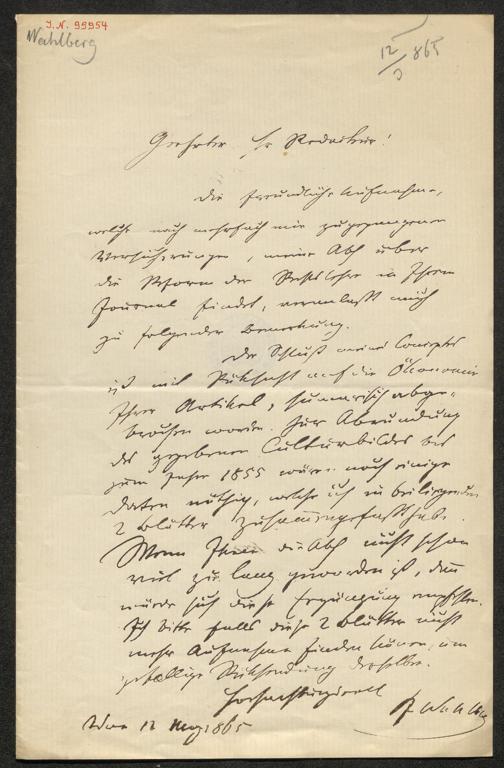 I. N. 95954
Wahlberg
12/3 865
Geehrter Hr Redakteur!
Die freundliche Aufnahme,
welche nach mehrfach mir zugegangenen
Versicherungen, meine Abh über
die Reform der Rechtslehre in Ihrem
Journal findet, veranlaßt mich
zu folgender Bemerkung.
Der Schluß meines Conceptes
ist mit Rücksicht auf die Ökonomie
Ihrer Artikel, summarisch abge-
brochen worden. Zur Abrundung
des gegebenen Culturbildes bis
zum Jahre 1855 wären noch einige
Daten nöthig, welche ich in beiliegenden
2 Blätter zusammengefaßt habe.
Wenn Ihnen die Abh nicht schon
viel zu lang geworden ist, dann
würde sich diese Ergänzung empfehlen.
Ich bitte falls diese 2 Blätter nicht
mehr Aufnahme finden können, um
gefällige Rücksendung derselben.
Hochachtungsvoll
Wahlberg
Wien 12 März 865